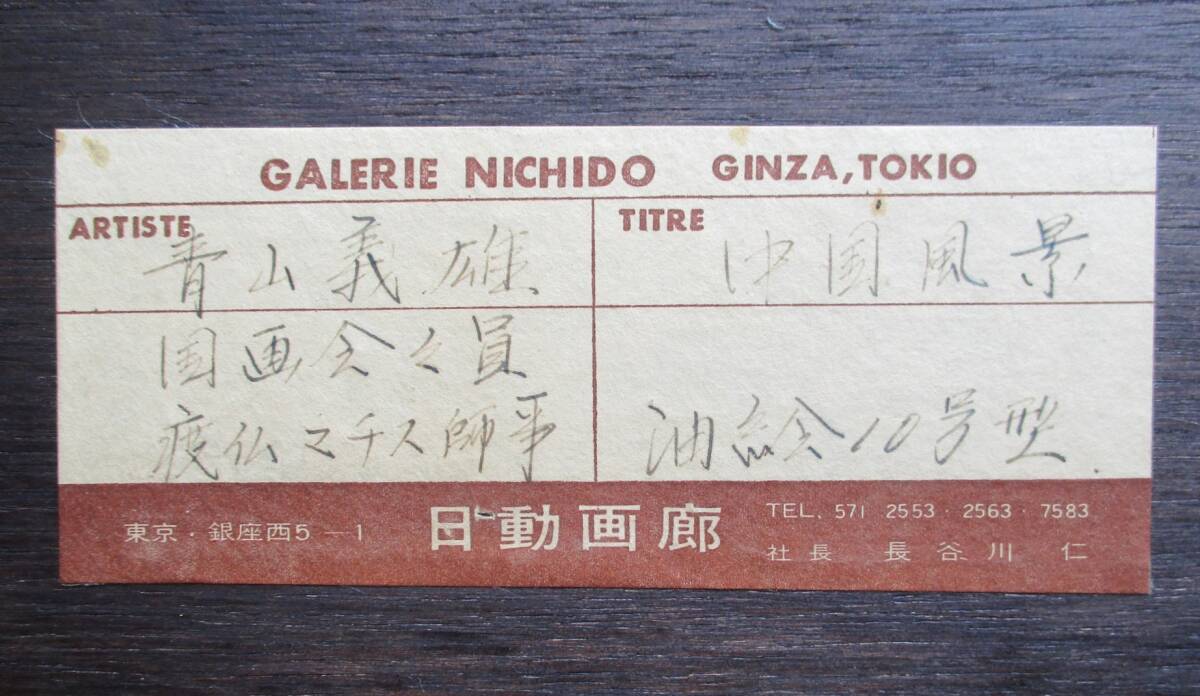 GALERIE NICHIDO GINZA, TOKIO
ARTISTE
青山義雄
TITRE
中国風景
国画会々員
渡仏マチス師事
油絵10号型.
東京・銀座西5—1
日動画廊
TEL. 571 2553・2563・7583
社長 長谷川 仁